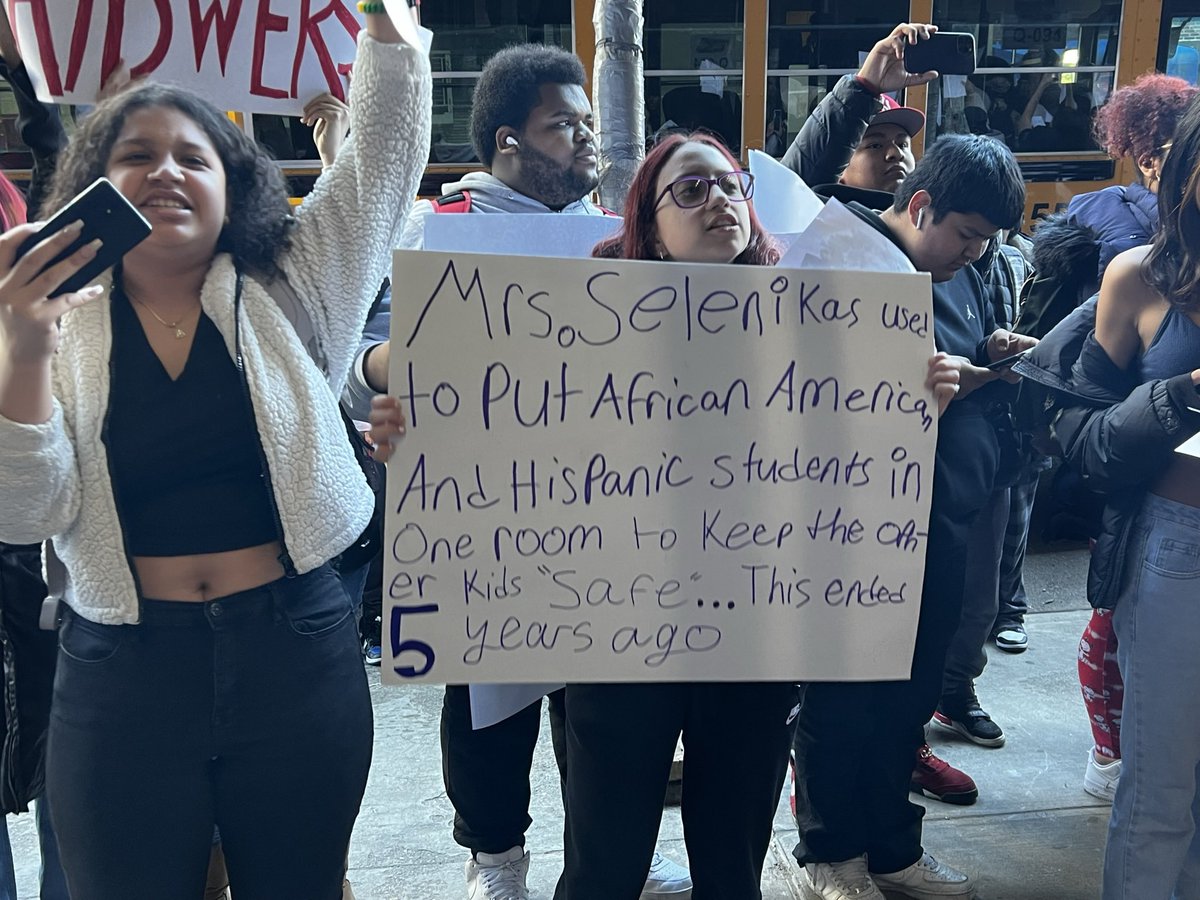 ANSWERS
Mrs. Selenikas used
to Put African American,
And Hispanic students in
One room to Keep the oth-
er Kids "Safe"... This ended
5 years ago